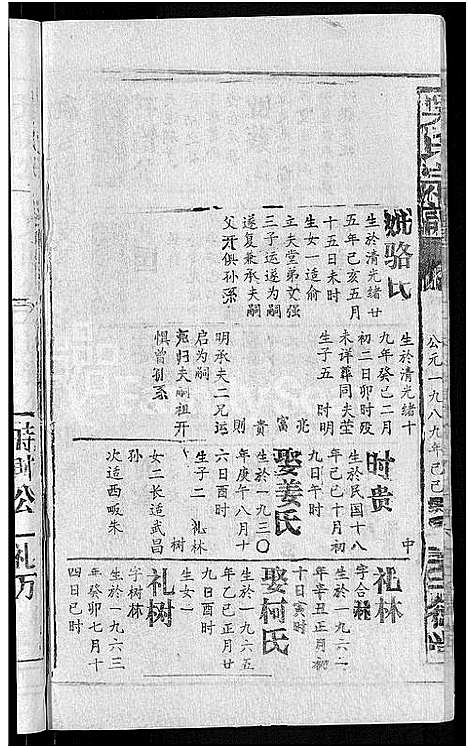 公元一九八九年己巳
姚骆氏
生於清光绪廿
五年己亥五月
十五日未时
生女一适俞
立夫堂弟文强
三子运遂为嗣
遂复兼承夫嗣
父开俱孙系
生於清光绪十
九年癸巳二月
初二日卯时殁
未详葬同夫茔
生子五 时明
兆
富
贵
则
明承夫二兄运
启为嗣
雍归夫嗣祖开
惧曾孙系
中
时贵
生於民国十八
年己巳十月初
九日午时
娶姜氏
生於一九三〇
年庚午八月十
六日酉时
生子二 礼林
树
女二长适武昌
孙
次适西畈朱
礼林
字合
生於一九六一
年辛丑正月初
十日寅时
娶柯氏
生於一九六五
年乙巳正月廿
九日酉时
生女一
礼树
字树林
生於一九六三
年癸卯七月十
四日巳时
时财公
礼万